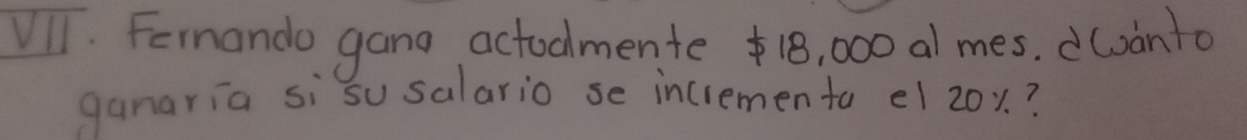 VII. Fernando gana actualmente $18,000 al mes. ¿Cuánto
ganaría si su salario se incrementa el 20%?